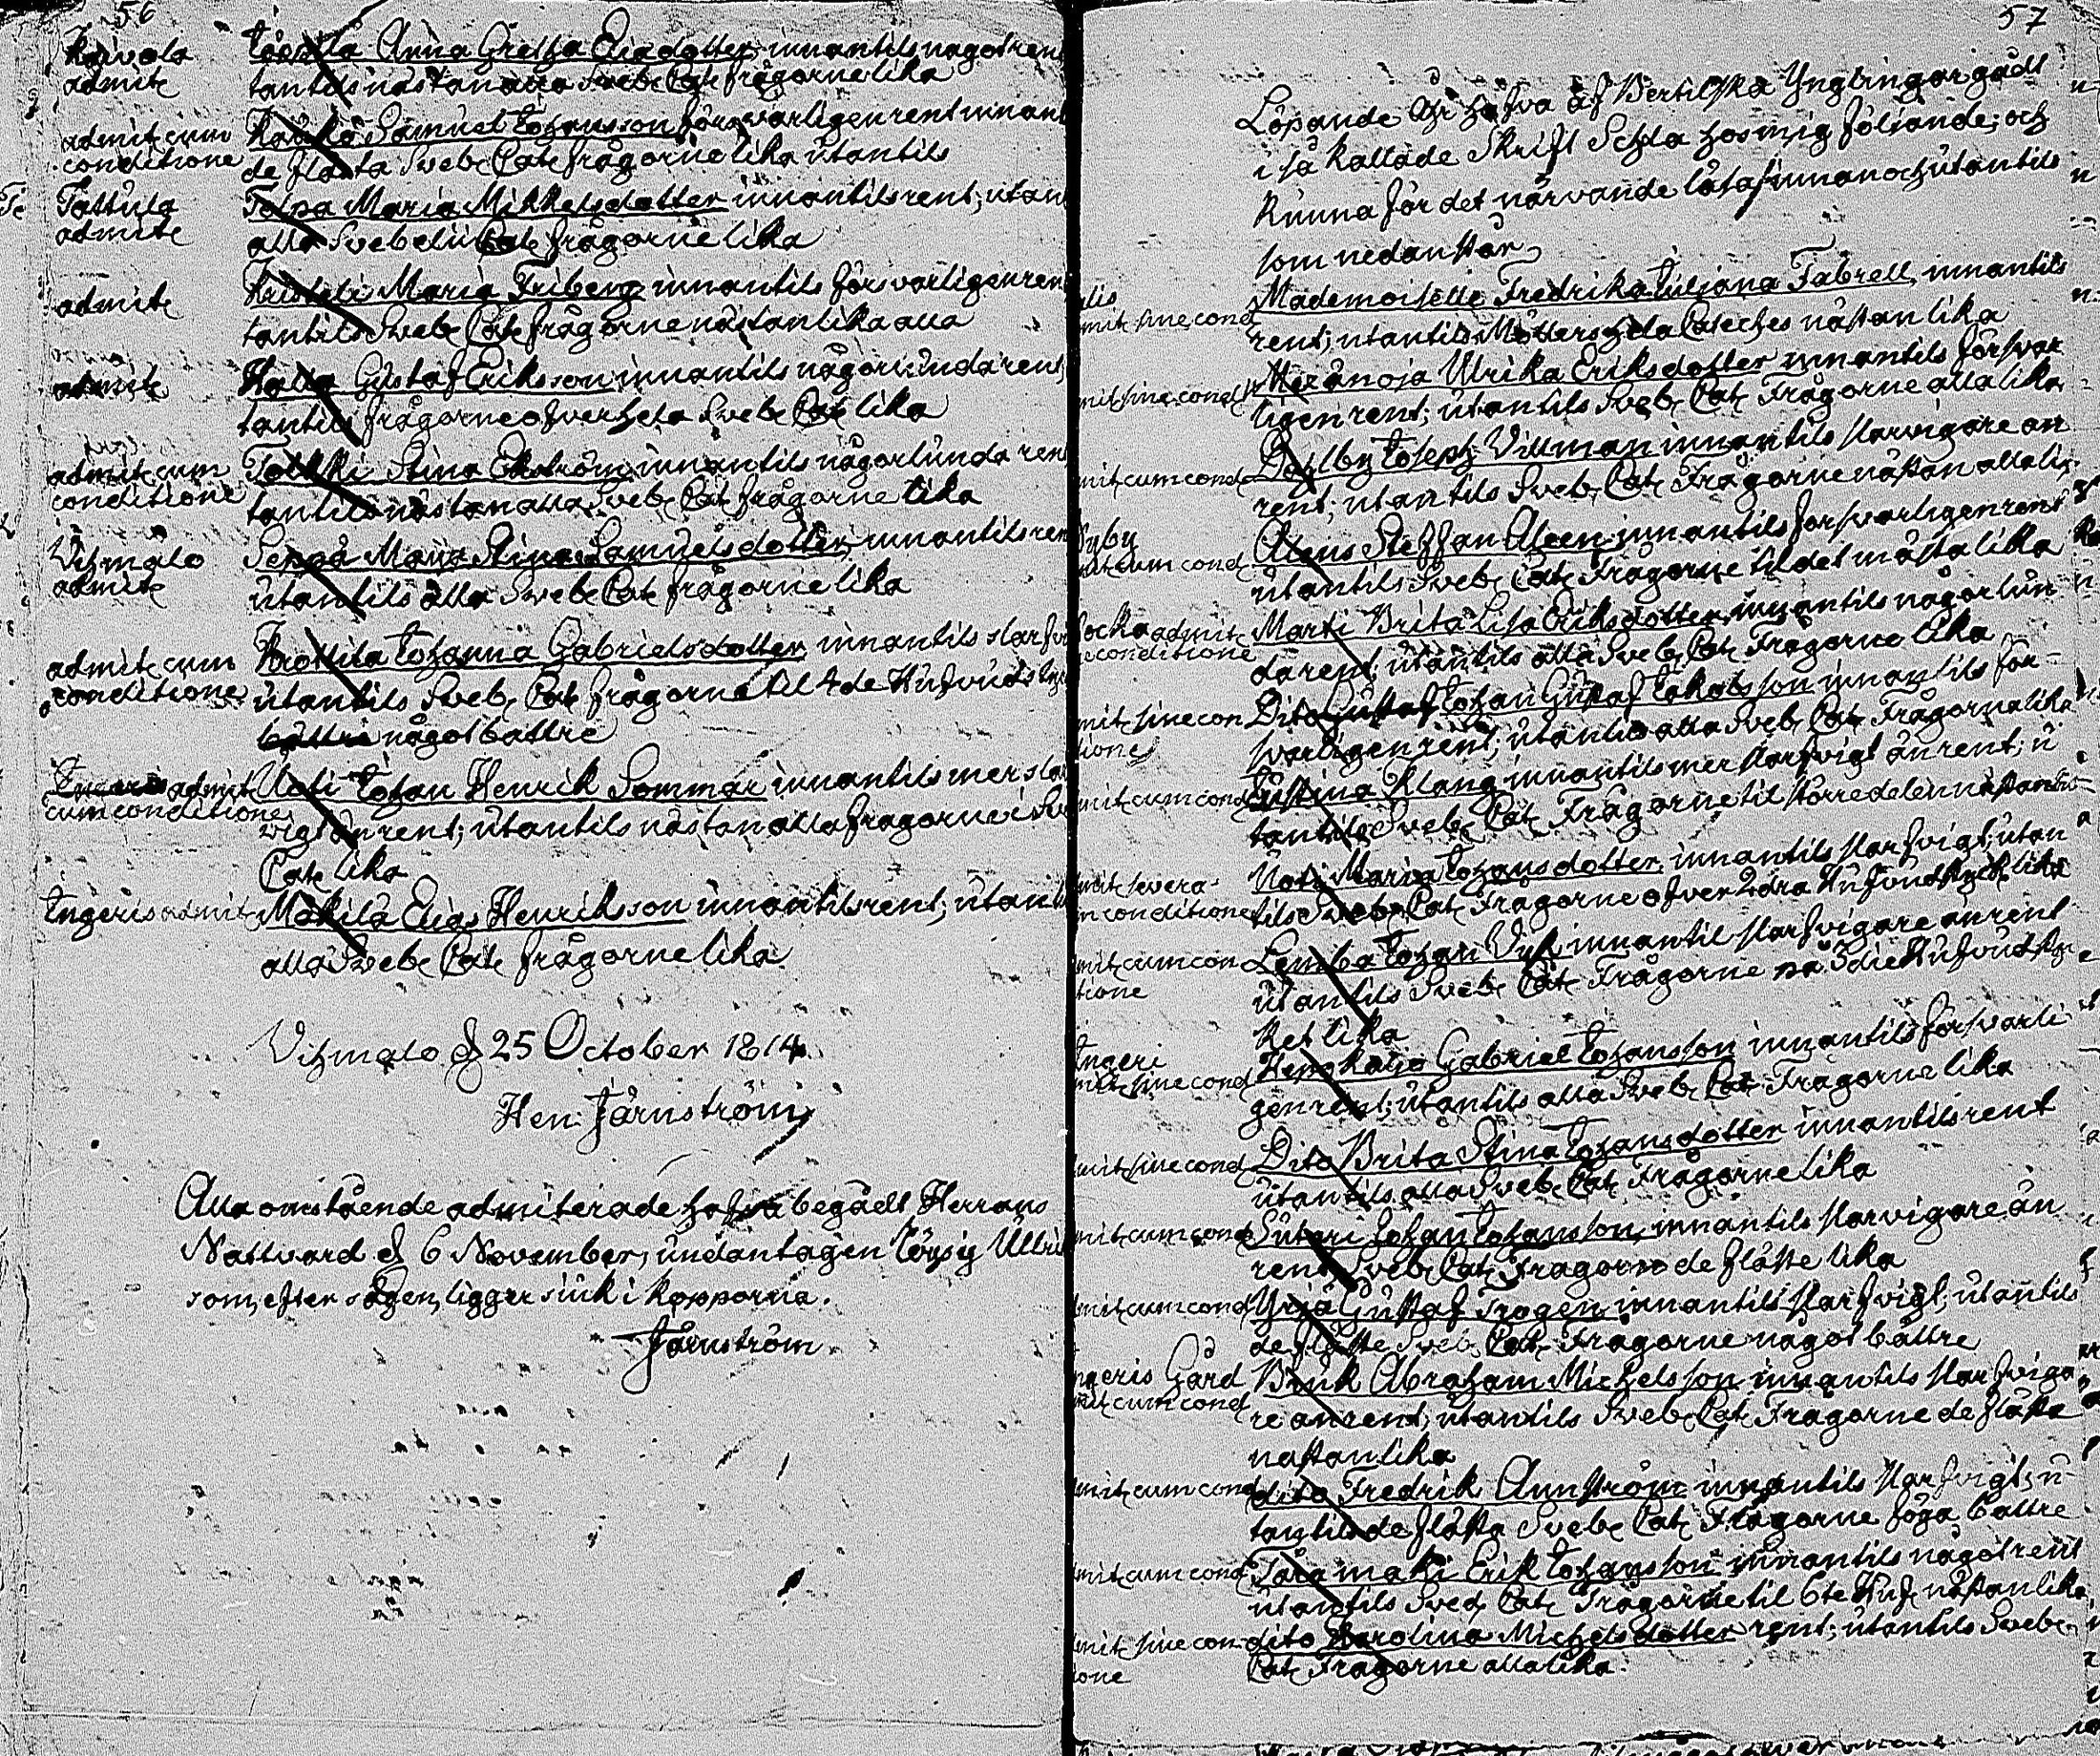 56
Kaivola
admit:
Töppilä Anna Gretha Eliædotter innantils något ren
tantils nästan alla Sveb: Cat: frågorne lika
admit: cum
conditione
Samuel Johansson försvarligen rent innan
de flästa Sveb: Cat: frågorne lika utantils
Tattula
admit:
Maria Mikkelsdotter innantils rent; utan
alla Svebelii Cat: frågorne lika
admit:
Maria Friberg innantils försvarligen ren
tantils Sveb: Cat: frågorne nästan lika alla
admit:
Halla Gustaf Eriksson innantils någorlunda rent,
tantils frågorne öfver hela Sveb: Cat: lika
admit: cum
conditione
Stina Ekström innantils någorlunda ren
tantils nästan alla Sveb: Cat: frågorne lika
Vihmalo
admit:
Seppä Maria Stina Samuelsdotter innantils ren
utantils alla Sveb: Cat: frågorne lika
admit: cum
conditione
Johanna Gabrielsdotter innantils starfvi
utantils Sveb: Cat: frågorne til 4de Hufvuds
något bättre
admit:
cum conditione
Uoti Johan Henrik Sommar innantils mer sta
vigt än rent; utantils nästan alla frågorne i Sve
Cat: lika
Ingeris admit:
Mäkilä Elias Henriksson innantils rent; utanti
alla Sveb: Cat: frågorne lika.
Vihmalo d 25 October 1814.
Hen: Järnström
Alla omstående admiterade hafva begådt Herrans
Nattvard d 6 November, undantagen Löysy Ullri
som, efter sägen, ligger siuk i kopporna.
Järnström.
57
Löpande År hafva af Bertilska Ynglingar gådt
i så kallade Skrift Schola hos mig följande; och
kunna för det närvande läta innan och utantils
som nedanstår
Mademoiselle Fredrika Juliana Tabrell innantils
mit: sine cond
rent; utantils Möllers hela Cateches nästan lika
mit: sine cond
Ulrika Eriksdotter innantils försvar
ligen rent; utantils Sveb: Cat: Frågorne alla lika
mit: cum cond
Dahlby Joseph Villman innantils starvigare än
rent; utantils Sveb: Cat: Frågorne nästan alla lik
mit: cum cond
Steffan Aleen innantils försvarligen rent
utantils Sveb: Cat: Frågorne til det mästa lika
ocka admit:
conditione
Marti Brita Lisa Eriksdotter innantils någorlun
da rent; utantils alla Sveb: Cat: Frågorne lika
mit: sine con
tione
Dito Johan Gustaf Jakobsson innantils för-
svarligen rent; utantils alla Sveb: Cat: Frågorna lika
mit: cum cond
Justina Klang innantils mer starfvigt än rent; u
tantils Sveb: Cat: Frågorne til större delen nästan
mit: severa
conditione
Uoti Maria Johansdotter innantils starfvigt; utan
tils Sveb: Cat: Frågorne öfver 2dra Hufvudstyck: lika
mit: cum con
tione
Lemba Johan innantil starfvigare än rent
utantils Sveb: Cat: Frågorne på 3die Hufvudsty
ket lika
Ingeri
mit: sine cond
Gabriel Johansson innantils försvarli
gen rent; utantils alla Sveb: Cat: Frågorne lika
mit: sine cond
Dito Brita Stina Johansdotter innantils rent
utantils alla Sveb: Cat: Frågorne lika
mit: cum cond
Sutari Johan Johansson, innantils starvigare än
rent, Sveb: Cat: Frågorne de fläste lika
mit: cum cond
Yrjä Gustaf Trogen innantils starfvigt; utantils
de fläste Sveb: Cat: Frågorne något bättre
geris Gård
mit: cum cond
Bruk Abraham Michelsson innantils starfviga
re än rent; utantils Sveb: Cat: Frågorne de flästa
nästan lika
mit: cum cond
dito Fredrik innantils starfvigt; u-
tantils de flästa Sveb: Cat: Frågorne föga bättre
mit: cum cond
Erik Johansson innantils något rent
utantils Sveb: Cat: Frågorne til 6te Huf: nästan lika
mit: sine con
ione
dito Karolina Michelsdotter rent; utantils Sveb:
Cat: Frågorne alla lika.